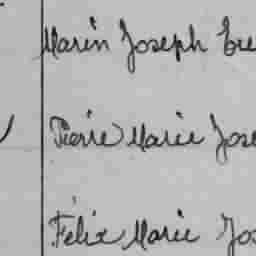 Marin Joseph
Pierre Marie Jose
Félix Marie Jos